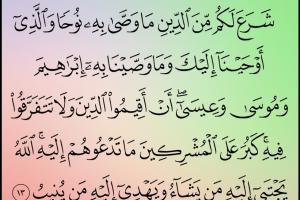 شَرَعَ لَكُم مِّنَ ٱلدِّينِ مَا وَصَّىٰ بِهِۦ نُوحًا وَٱلَّذِىٓ
أَوْحَيْنَآ إِلَيْكَ وَمَا وَصَّيْنَا بِهِۦٓ إِبْرَٰهِيمَ
وَمُوسَىٰ وَعِيسَىٰٓ ۖ أَنْ أَقِيمُوا۟ ٱلدِّينَ وَلَا تَتَفَرَّقُوا۟
فِيهِ ۚ كَبُرَ عَلَى ٱلْمُشْرِكِينَ مَا تَدْعُوهُمْ إِلَيْهِ ۚ ٱللَّهُ
يَجْتَبِىٓ إِلَيْهِ مَن يَشَآءُ وَيَهْدِىٓ إِلَيْهِ مَن يُنِيبُ ١٣